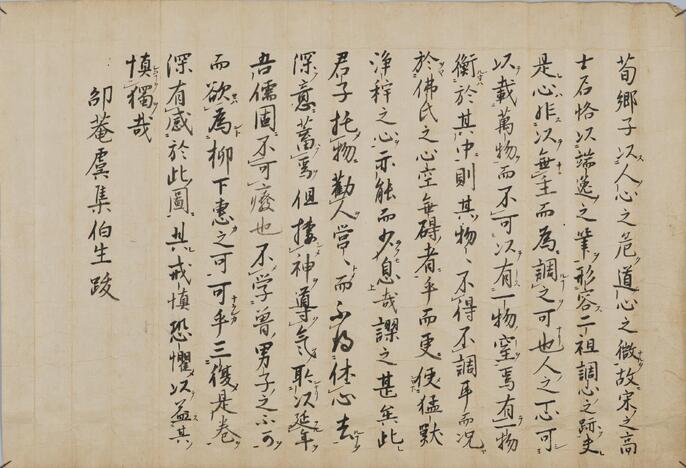 荀郷子以人心之危道心之微故宋之高
士石恪以端逸之筆形容二祖調心之跡夫
是心非以無主而為調之可也人之一心可
以載萬物而不可以有一物窒焉有一物
衡於其中則其物〻不得不調耳而况
於佛氏之心空無碍者乎而更使猛獸
浄稡之心示能而少息哉謬之甚矣此
君子托物勸人當〻而不為休心去
深意蓄焉但捿神導氣聊以延年
吾儒固不可癈也不学曽男子之不可
而欲為柳下惠之可可乎三復是卷
深有感於此圖其戒慎恐懼以孟其
慎獨哉
邵菴虞集伯生跋